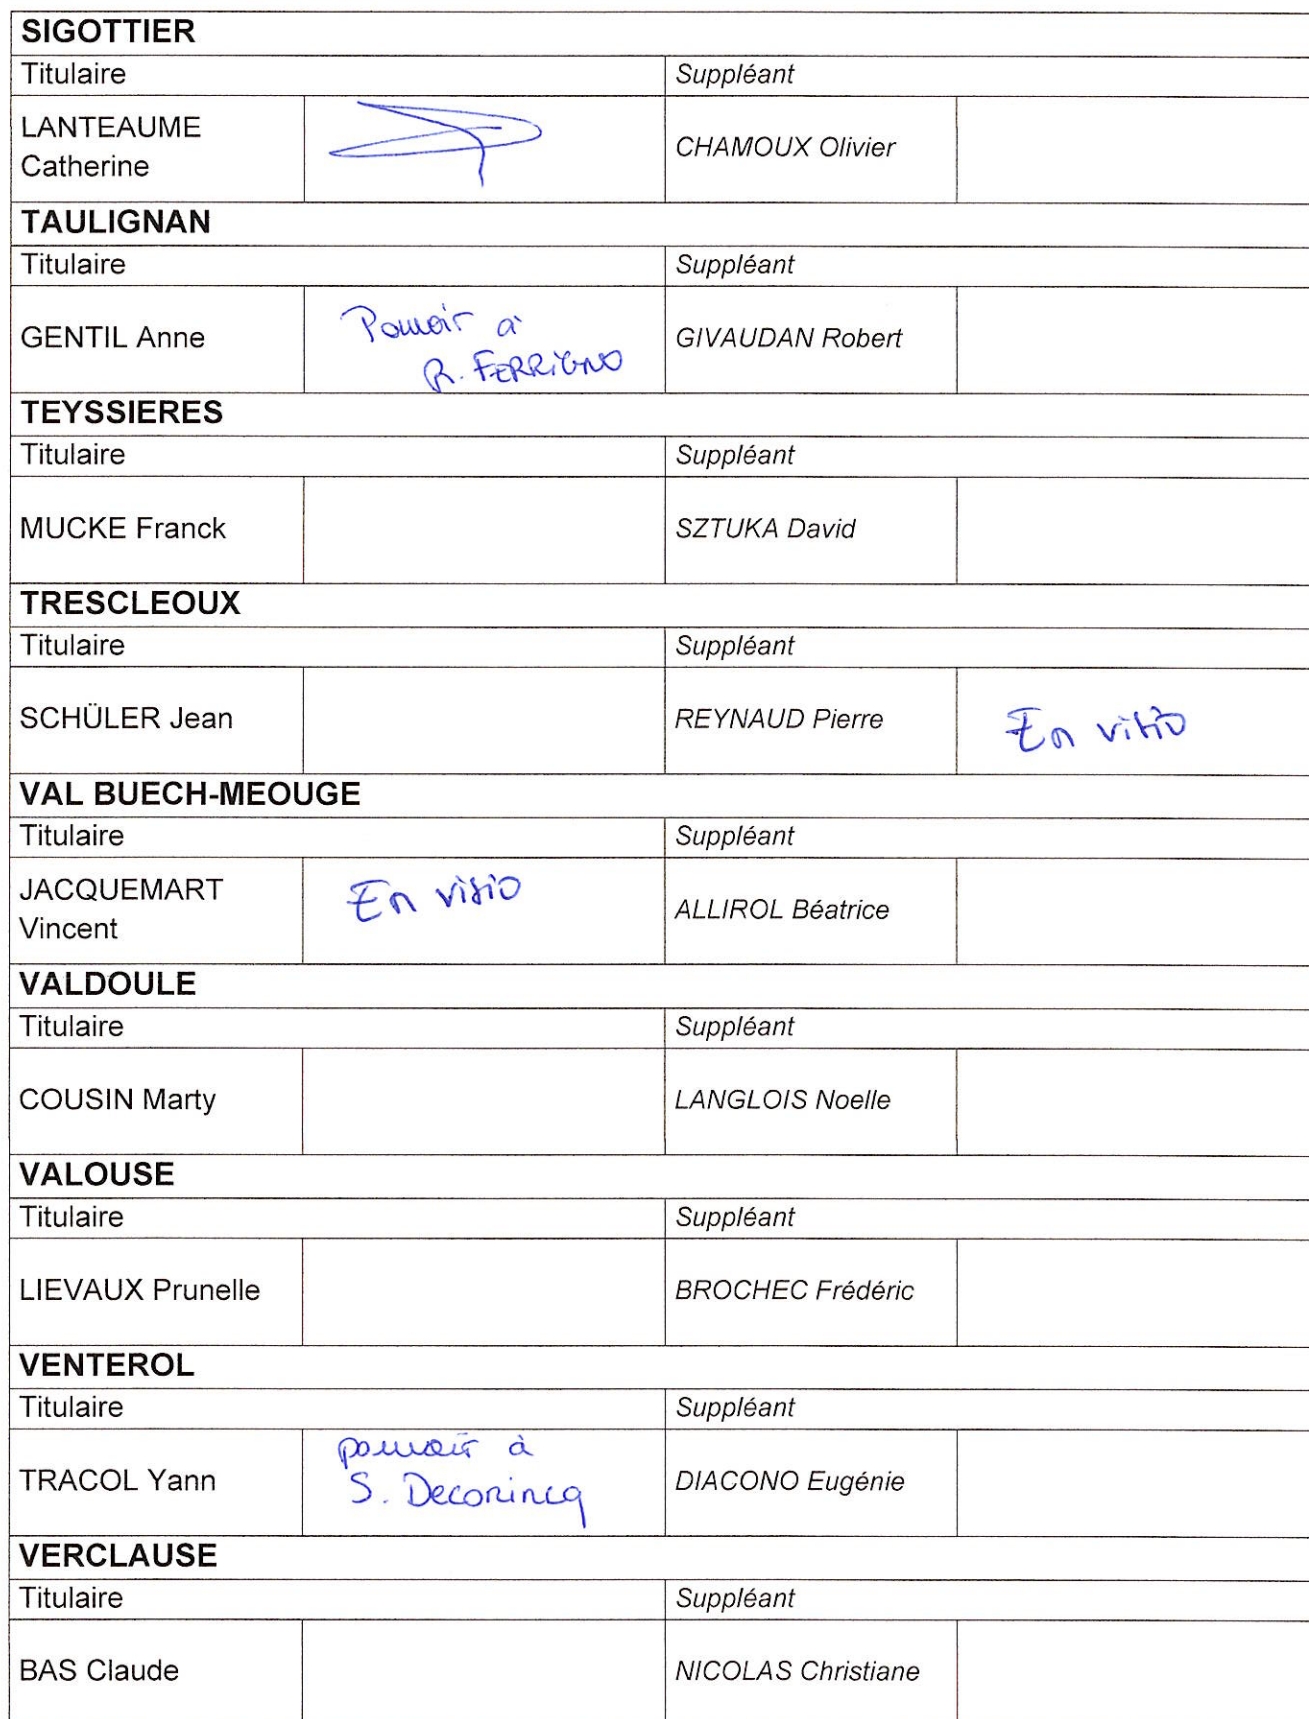 SIGOTTIER
Titulaire Suppléant
LANTEAUME
Catherine
CHAMOUX Olivier
TAULIGNAN
Titulaire Suppléant
GENTIL Anne
Pouvoir à
R. FERRIGNO
GIVAUDAN Robert
TEYSSIERES
Titulaire Suppléant
MUCKE Franck
SZTUKA David
TRESCLEOUX
Titulaire Suppléant
SCHÜLER Jean
REYNAUD Pierre
En visio
VAL BUECH-MEOUGE
Titulaire Suppléant
JACQUEMART
Vincent
En visio
ALLIROL Béatrice
VALDOULE
Titulaire Suppléant
COUSIN Marty
LANGLOIS Noelle
VALOUSE
Titulaire Suppléant
LIEVAUX Prunelle
BROCHEC Frédéric
VENTEROL
Titulaire Suppléant
TRACOL Yann
pouvoir à
S. Deconincq
DIACONO Eugénie
VERCLAUSE
Titulaire Suppléant
BAS Claude
NICOLAS Christiane